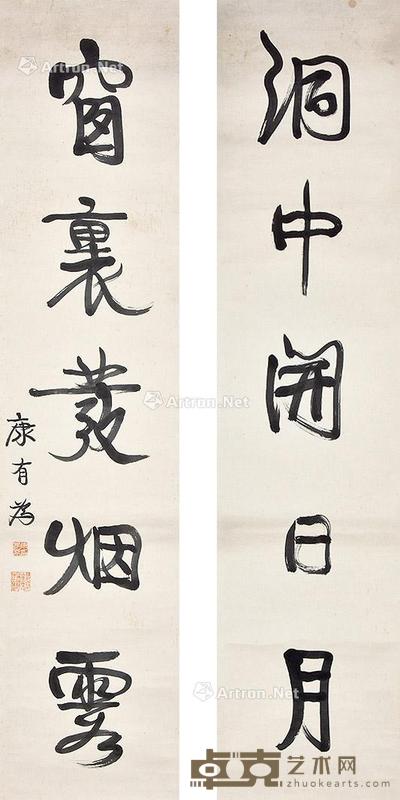 洞中開日月
窗裏發烟雲
康有為
Artron.Net
Artron.Net
Artron.Net
Artron.Net
Artron.Net
卓克艺术网
zhuokearts.com